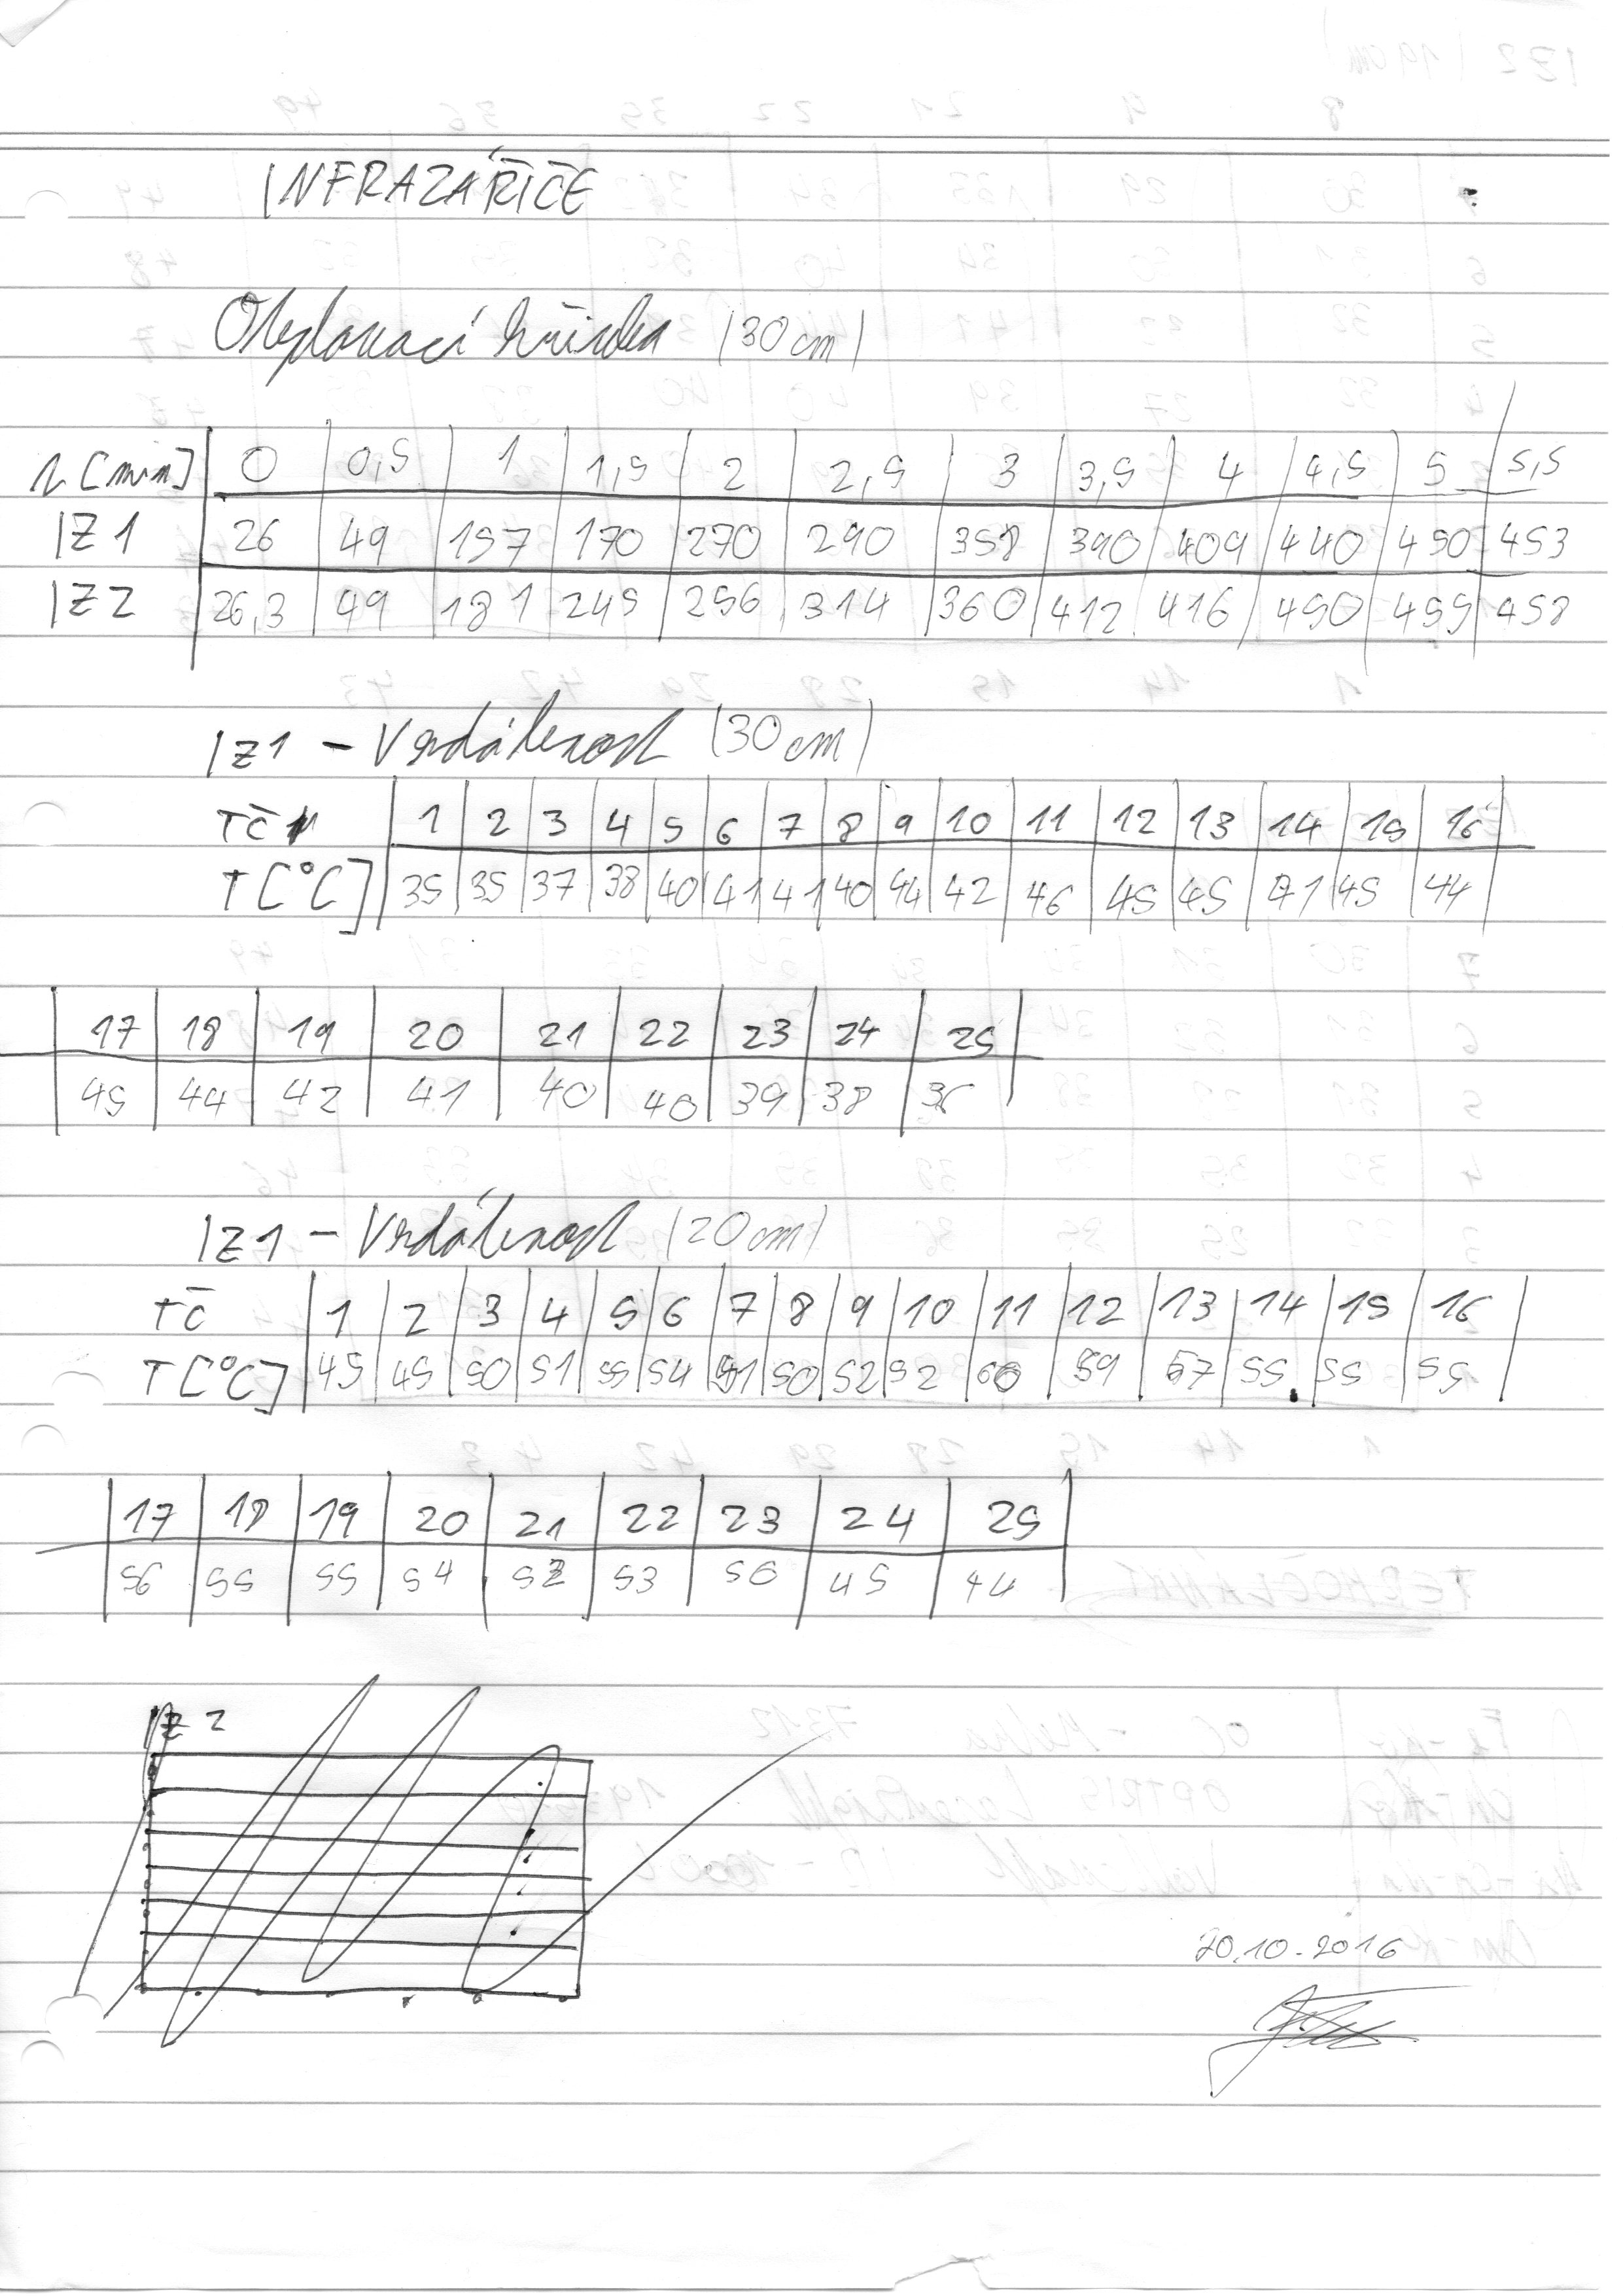 INFRAZÁŘIČE
Oteplovací křivka (30cm)
t [min] 0 0,5 1 1,5 2 2,5 3 3,5 4 4,5 5 5,5
IZ1 26 49 157 170 270 290 358 390 409 440 450 453
IZ2 26,3 49 181 245 256 314 360 412 416 450 455 458
IZ1 - Vzdálenost (30cm)
TČ 1 2 3 4 5 6 7 8 9 10 11 12 13 14 15 16
T[°C] 35 35 37 38 40 41 41 40 44 42 46 45 45 41 45 44
17 18 19 20 21 22 23 24 25
45 44 42 41 40 40 39 38 36
IZ1 - Vzdálenost (20cm)
TČ 1 2 3 4 5 6 7 8 9 10 11 12 13 14 15 16
T[°C] 45 45 50 51 55 54 51 50 52 52 60 59 57 55 55 55
17 18 19 20 21 22 23 24 25
56 55 55 54 52 53 50 45 44
IZ2
20.10.2016